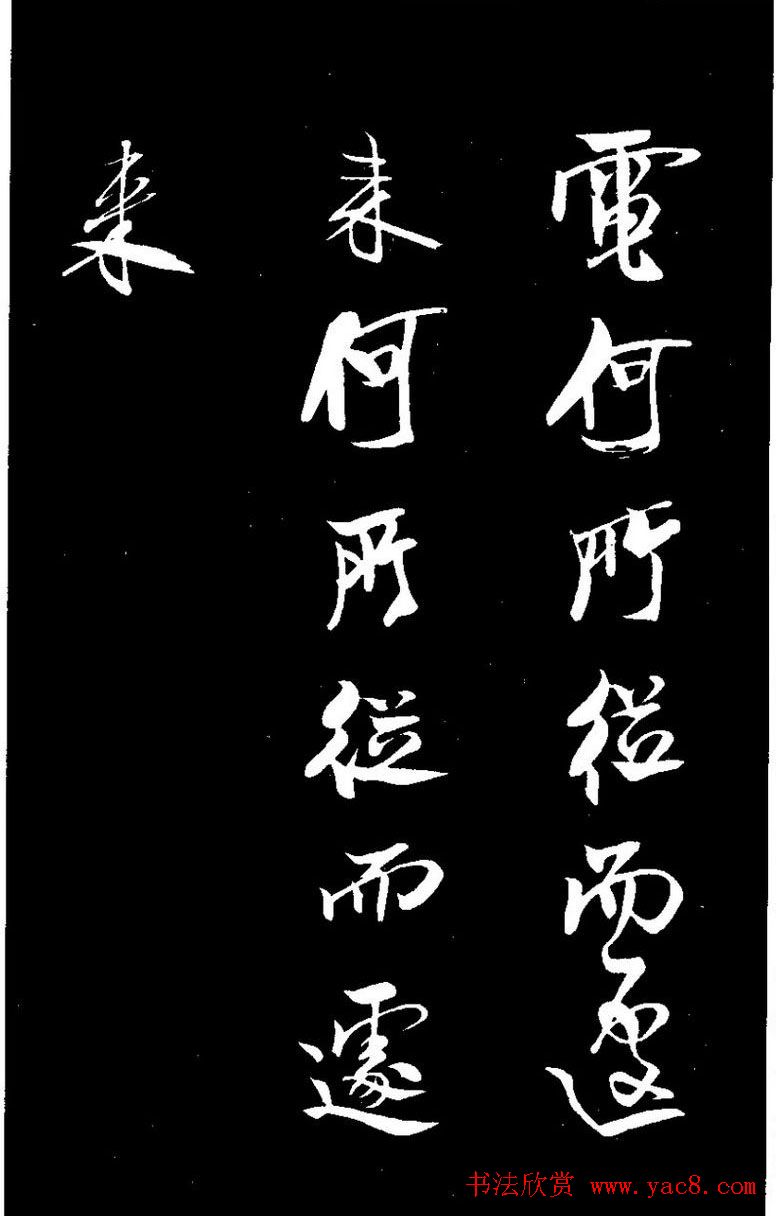 電何所從而遽
来何所從而遽
来
书法欣赏 www.yac8.com